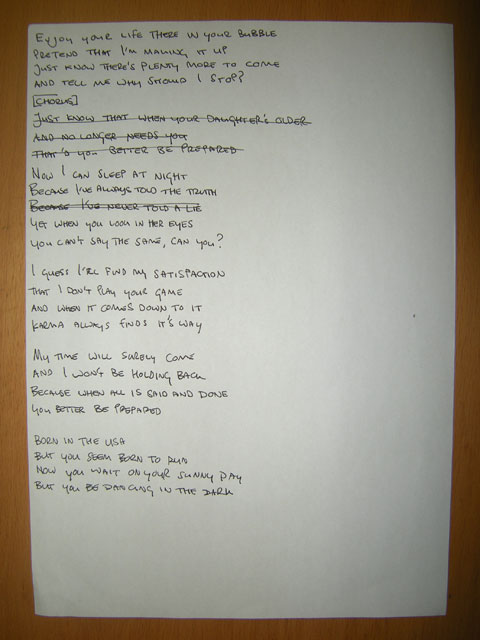 ENJOY YOUR LIFE THERE IN YOUR BUBBLE
PRETEND THAT I'M MAKING IT UP
JUST KNOW THERE'S PLENTY MORE TO COME
AND TELL ME WHY SHOULD I STOP?
[CHORUS]
JUST KNOW THAT WHEN YOUR DAUGHTER'S OLDER
AND NO LONGER NEEDS YOU
THAT'S YOU BETTER BE PREPARED
NOW I CAN SLEEP AT NIGHT
BECAUSE I'VE ALWAYS TOLD THE TRUTH
BECAUSE I'VE NEVER TOLD A LIE
YET WHEN YOU LOOK IN HER EYES
YOU CAN'T SAY THE SAME, CAN YOU?
I GUESS I'LL FIND MY SATISFACTION
THAT I DON'T PLAY YOUR GAME
AND WHEN IT COMES DOWN TO IT
KARMA ALWAYS FINDS IT'S WAY
MY TIME WILL SURELY COME
AND I WON'T BE HOLDING BACK
BECAUSE WHEN ALL IS SAID AND DONE
YOU BETTER BE PREPARED
BORN IN THE USA
BUT YOU SEEM BORN TO RUN
NOW YOU WAIT ON YOUR SUNNY DAY
BUT YOU BE DANCING IN THE DARK